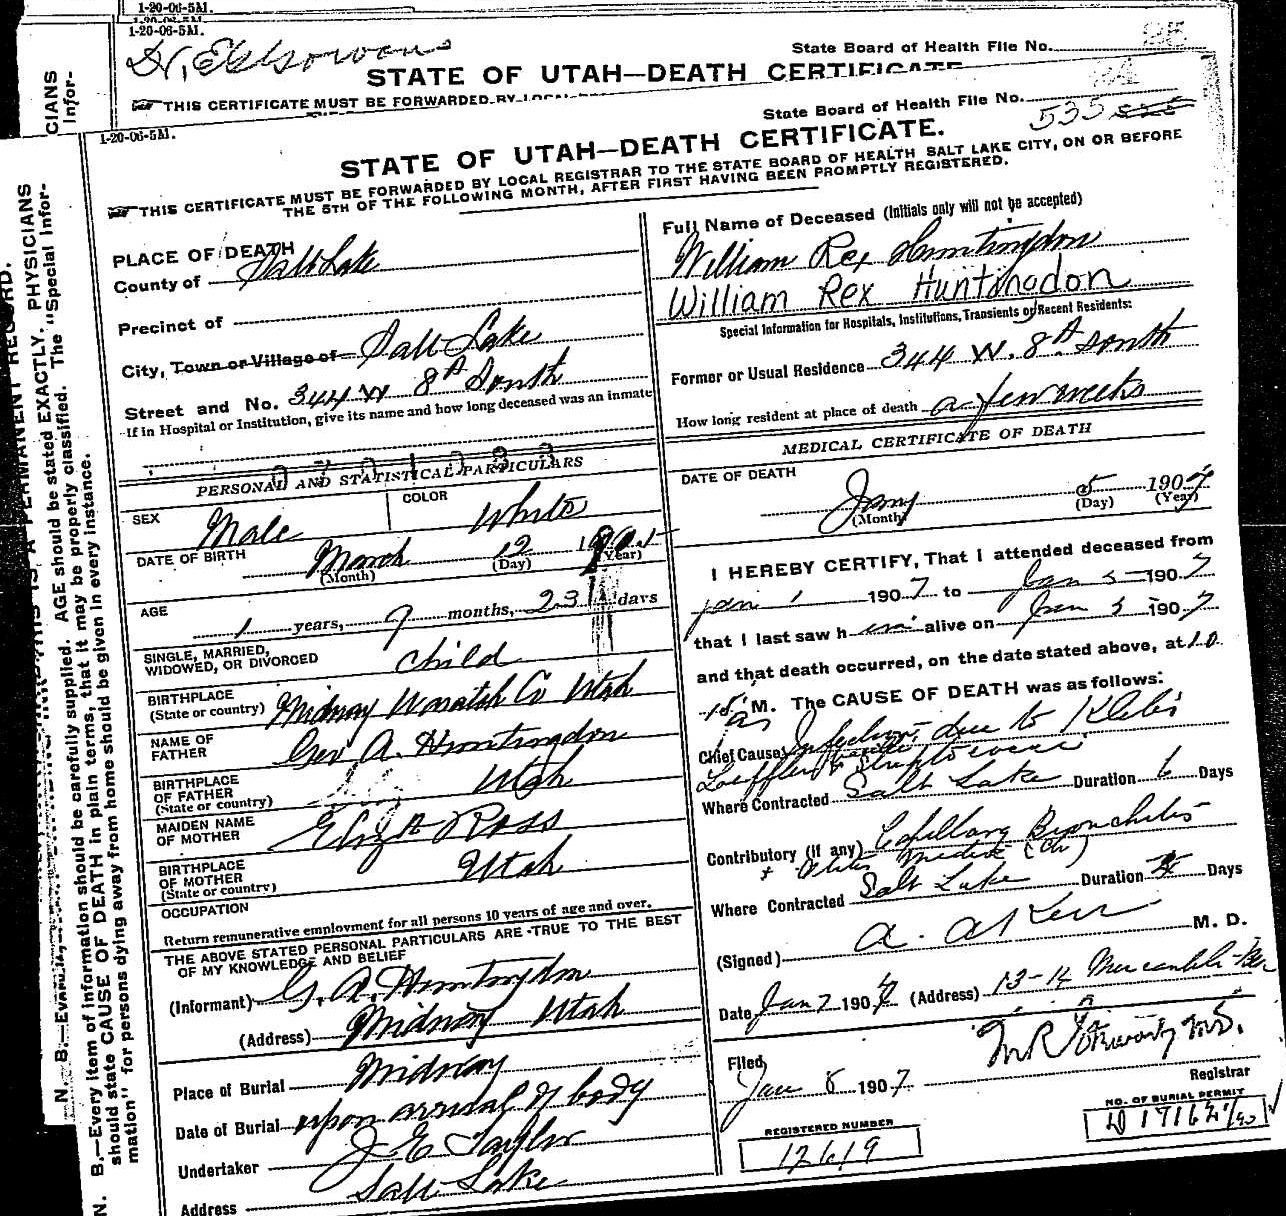 1-20-06-5M.
1-20-06-5M.
State Board of Health File No.
STATE OF UTAH—DEATH CERTIFICATE
THIS CERTIFICATE MUST BE FORWARDED BY LOCAL
1-20-06-5M.
State Board of Health File No.
535
STATE OF UTAH—DEATH CERTIFICATE.
THIS CERTIFICATE MUST BE FORWARDED BY LOCAL REGISTRAR TO THE STATE BOARD OF HEALTH SALT LAKE CITY, ON OR BEFORE
THE 5TH OF THE FOLLOWING MONTH, AFTER FIRST HAVING BEEN PROMPTLY REGISTERED.
PLACE OF DEATH
County of Salt Lake
Precinct of
City, Town or Village of Salt Lake
Street and No. 344 W 8th South
If in Hospital or Institution, give its name and how long deceased was an inmate
PERSONAL AND STATISTICAL PARTICULARS
SEX Male
COLOR White
DATE OF BIRTH March 12
(Month) (Day) (Year)
AGE 1 years, 9 months, 23 days
SINGLE, MARRIED,
WIDOWED, OR DIVORCED Child
BIRTHPLACE
(State or country) Midway Wasatch Co Utah
NAME OF
FATHER Geo A. Huntingdon
BIRTHPLACE
OF FATHER Utah
(State or country)
MAIDEN NAME
OF MOTHER Eliza Ross
BIRTHPLACE
OF MOTHER Utah
(State or country)
OCCUPATION
Return remunerative employment for all persons 10 years of age and over.
THE ABOVE STATED PERSONAL PARTICULARS ARE TRUE TO THE BEST
OF MY KNOWLEDGE AND BELIEF
(Informant) G. A. Huntingdon
(Address) Midway Utah
Place of Burial Midway
Date of Burial upon arrival of body
Undertaker J E Taylor
Address Salt Lake
Full Name of Deceased (Initials only will not be accepted)
William Rex Huntingdon
William Rex Huntingdon
Special Information for Hospitals, Institutions, Transients or Recent Residents:
Former or Usual Residence 344 W. 8th South
How long resident at place of death a few weeks
MEDICAL CERTIFICATE OF DEATH
DATE OF DEATH
Jany 5 1907
(Month) (Day) (Year)
I HEREBY CERTIFY, That I attended deceased from
Jan 1 1907 to Jan 5 1907
that I last saw him alive on Jan 5 1907
and that death occurred, on the date stated above, at 10
15 M. The CAUSE OF DEATH was as follows:
Chief Cause Infection due to Klebs
Loeffler & Streptococci
Where Contracted Salt Lake Duration 6 Days
Contributory (if any) Capillary Bronchitis
+ Otitis Media (Ch)
Where Contracted Salt Lake Duration Days
(Signed) M. D.
Date Jan 7 1907 (Address) 13-14
Filed
Jan 8 1907
Registrar
REGISTERED NUMBER
12619
NO. OF BURIAL PERMIT
N. B.—Every item of information should be carefully supplied. AGE should be stated EXACTLY. PHYSICIANS
should state CAUSE OF DEATH in plain terms, that it may be properly classified. The "Special Infor-
mation" for persons dying away from home should be given in every instance.